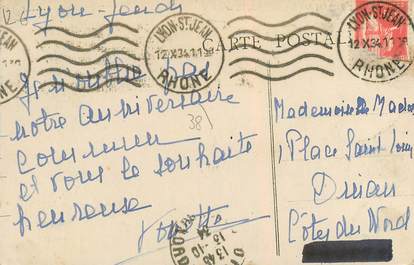 Lyon-Jeudi
LYON-ST JEAN
12 X 34
RHONE
CARTE POSTALE
LYON-ST JEAN
12 X 34
RHONE
Je n'oublie pas
notre anniversaire
commun
et vous le souhaite
heureuse
Yvette
38
Mademoiselle
1 Place Saint
Dinan
Côtes du Nord
13-10
34
NORD